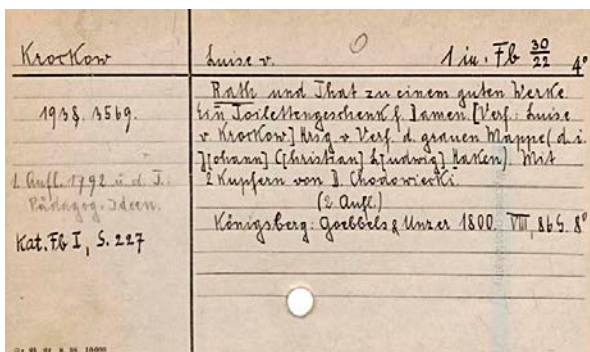 Krockow
Luise v.
0
1 in: Fb 30/22 4°
1938. 3569.
1. Aufl. 1792 u. d. T.:
Pädagog. Ideen.
Kat. Fb I, S. 227
Rath und That zu einem guten Werke
Ein Toilettengeschenk f. Damen [Verf: Luise
v. Krockow] Hrsg v. Verf. d. grauen Mappe (d. i.
J[ohann] C[hristian] L[udwig] Haken). Mit
2 Kupfern von D. Chodowiecki.
(2. Aufl.)
Königsberg: Goebbels & Unzer 1800. VIII, 86 S. 8°
10000